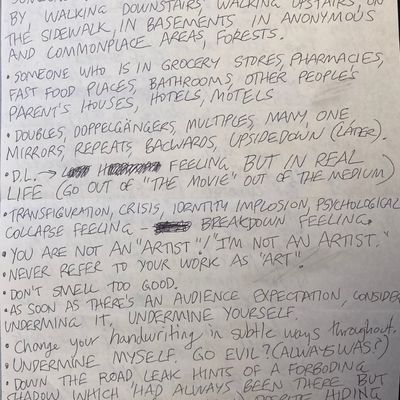 BY, WALKING DOWNSTAIRS, WALKING UPSTAIRS, ON
THE SIDEWALK, IN BASEMENTS IN ANONYMOUS
AND COMMONPLACE AREAS, FORESTS.
• SOMEONE WHO IS IN GROCERY STORES, PHARMACIES,
FAST FOOD PLACES, BATHROOMS, OTHER PEOPLE'S
PARENT'S HOUSES, HOTELS, MOTELS
• DOUBLES, DOPPELGÄNGERS, MULTIPLES, MANY, ONE,
MIRRORS, REPEATS, BACWARDS, UPSIDEDOWN (LATER).
• D.L. → FEELING BUT IN REAL
LIFE (GO OUT OF "THE MOVIE" OUT OF THE MEDIUM)
• TRANSFIGURATION, CRISIS, IDENTITY IMPLOSION, PSYCHOLOGICAL
COLLAPSE FEELING – BREAKDOWN FEELING.
• YOU ARE NOT AN "ARTIST"! "I'M NOT AN ARTIST."
• NEVER REFER TO YOUR WORK AS "ART".
• DON'T SMELL TOO GOOD.
• AS SOON AS THERE'S AN AUDIENCE EXPECTATION, CONSIDER
UNDERMING IT, UNDERMINE YOURSELF.
• Change your handwriting in subtle ways throughout.
• UNDERMINE MYSELF. GO EVIL? (ALWAYS WAS?)
• DOWN THE ROAD LEAK HINTS OF A FORBODING
SHADOW WHICH 'HAD ALWAYS BEEN THERE BUT
DESPITE HIDING